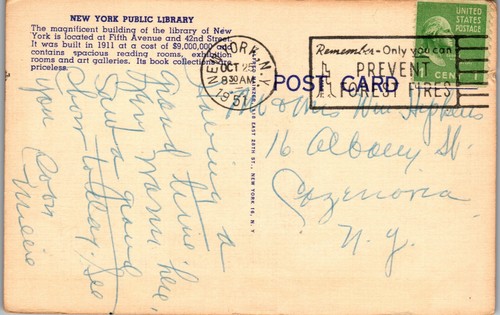 NEW YORK PUBLIC LIBRARY
The magnificent building of the library of New
York is located at Fifth Avenue and 42nd Street.
It was built in 1911 at a cost of $9,000,000 and
contains spacious reading rooms, exhibition
rooms and art galleries. Its book collections
priceless.
NEW YORK, N.Y.
OCT 25
8 30 AM
1951
Remember - Only you can
PREVENT
FOREST FIRES
UNITED
STATES
POSTAGE
1 CENT
POST CARD
EAST 28TH ST., NEW YORK 16, N. Y.
Having a
grand time here,
warm
Saw a good
Show to-day. See
you soon
Mr & Mrs Wm
16 Albany St.
Cazenovia
N.Y.